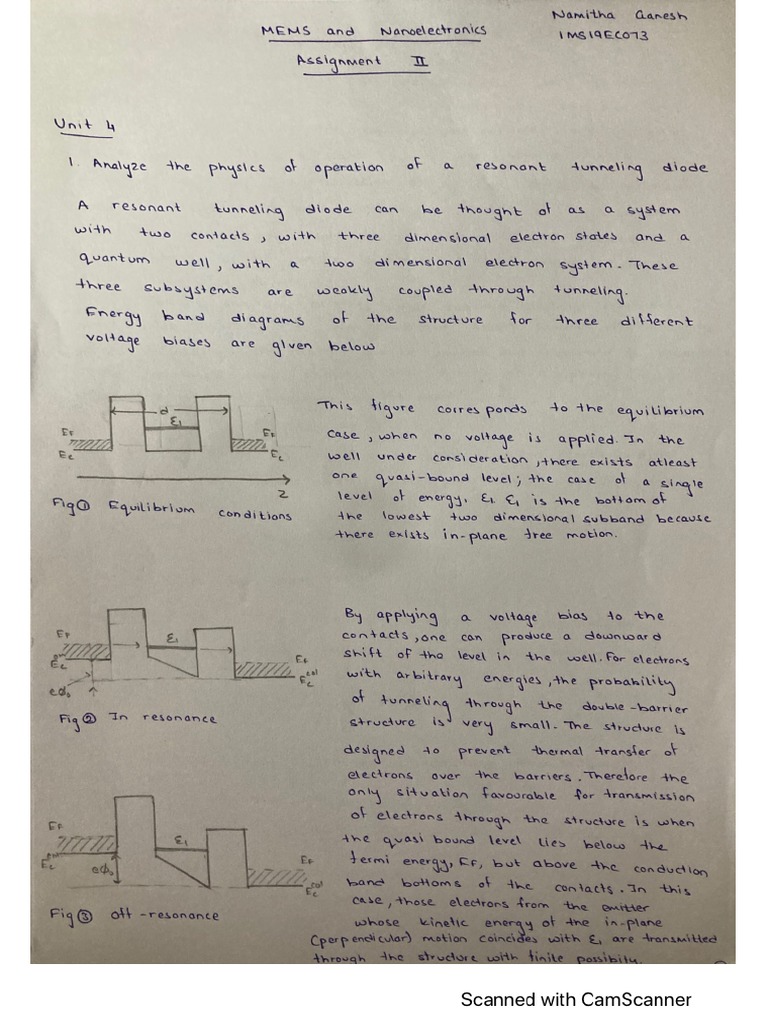 Namitha Ganesh
MEMS and Nanoelectronics
1MS19EC073
Assignment II
Unit 4
1. Analyze the physics of operation of a resonant tunneling diode
A resonant tunneling diode can be thought of as a system
with two contacts, with three dimensional electron states and a
quantum well, with a two dimensional electron system. These
three subsystems are weakly coupled through tunneling.
Energy band diagrams of the structure for three different
voltage biases are given below
d
ε1
EF
EF
Ec
Ec
z
Fig ① Equilibrium conditions
This figure corresponds to the equilibrium
case, when no voltage is applied. In the
well under consideration, there exists atleast
one quasi-bound level; the case of a single
level of energy, ε1. ε1 is the bottom of
the lowest two dimensional subband because
there exists in-plane free motion.
EF
ε1
EF
Ec em
Ec col
eϕ0
Fig ② In resonance
By applying a voltage bias to the
contacts, one can produce a downward
shift of the level in the well. For electrons
with arbitrary energies, the probability
of tunneling through the double-barrier
structure is very small. The structure is
designed to prevent thermal transfer of
electrons over the barriers. Therefore the
only situation favourable for transmission
of electrons through the structure is when
the quasi bound level lies below the
fermi energy, EF, but above the conduction
band bottoms of the contacts. In this
case, those electrons from the emitter
whose kinetic energy of the in-plane
(perpendicular) motion coincides with ε1 are transmitted
through the structure with finite possibity.
EF
ε1
EF
Ec em
eϕ0
Ec col
Fig ③ off-resonance
Scanned with CamScanner